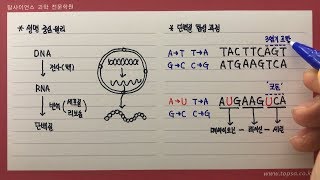 일사이언스 과학 전문학원
* 생명 중심 원리
DNA
전사(핵)
RNA
번역 (세포질 리보솜)
단백질
* 단백질 합성 과정
3염기 조합
A→T T→A
G→C C→G
TACTTCAGT
ATGAAGTCA
"코돈"
A→U T→A
G→C C→G
AUGAAGUCA
메싸이오닌 - 라이신 - 세린
www.topsc.co.k